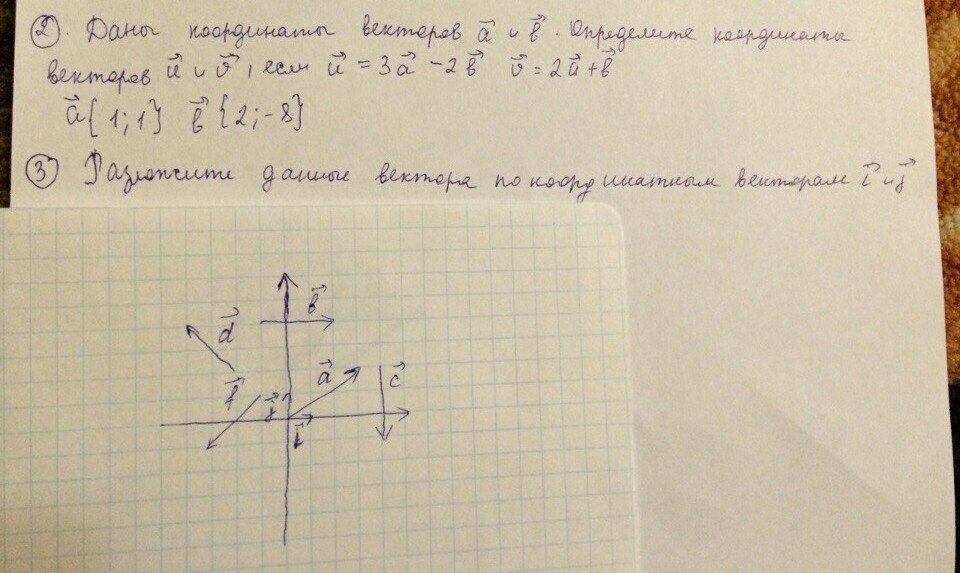 2. Даны координаты векторов a⃗ и b⃗. Определите координаты
векторов u⃗ и v⃗, если u⃗ = 3a⃗ - 2b⃗ v⃗ = 2u⃗ + b⃗
a⃗{1; 1} b⃗{2; -8}
3 Разложите данные вектора по координатным векторам i⃗ и j⃗
b⃗
d⃗
a⃗
c⃗
f⃗
j⃗
i⃗